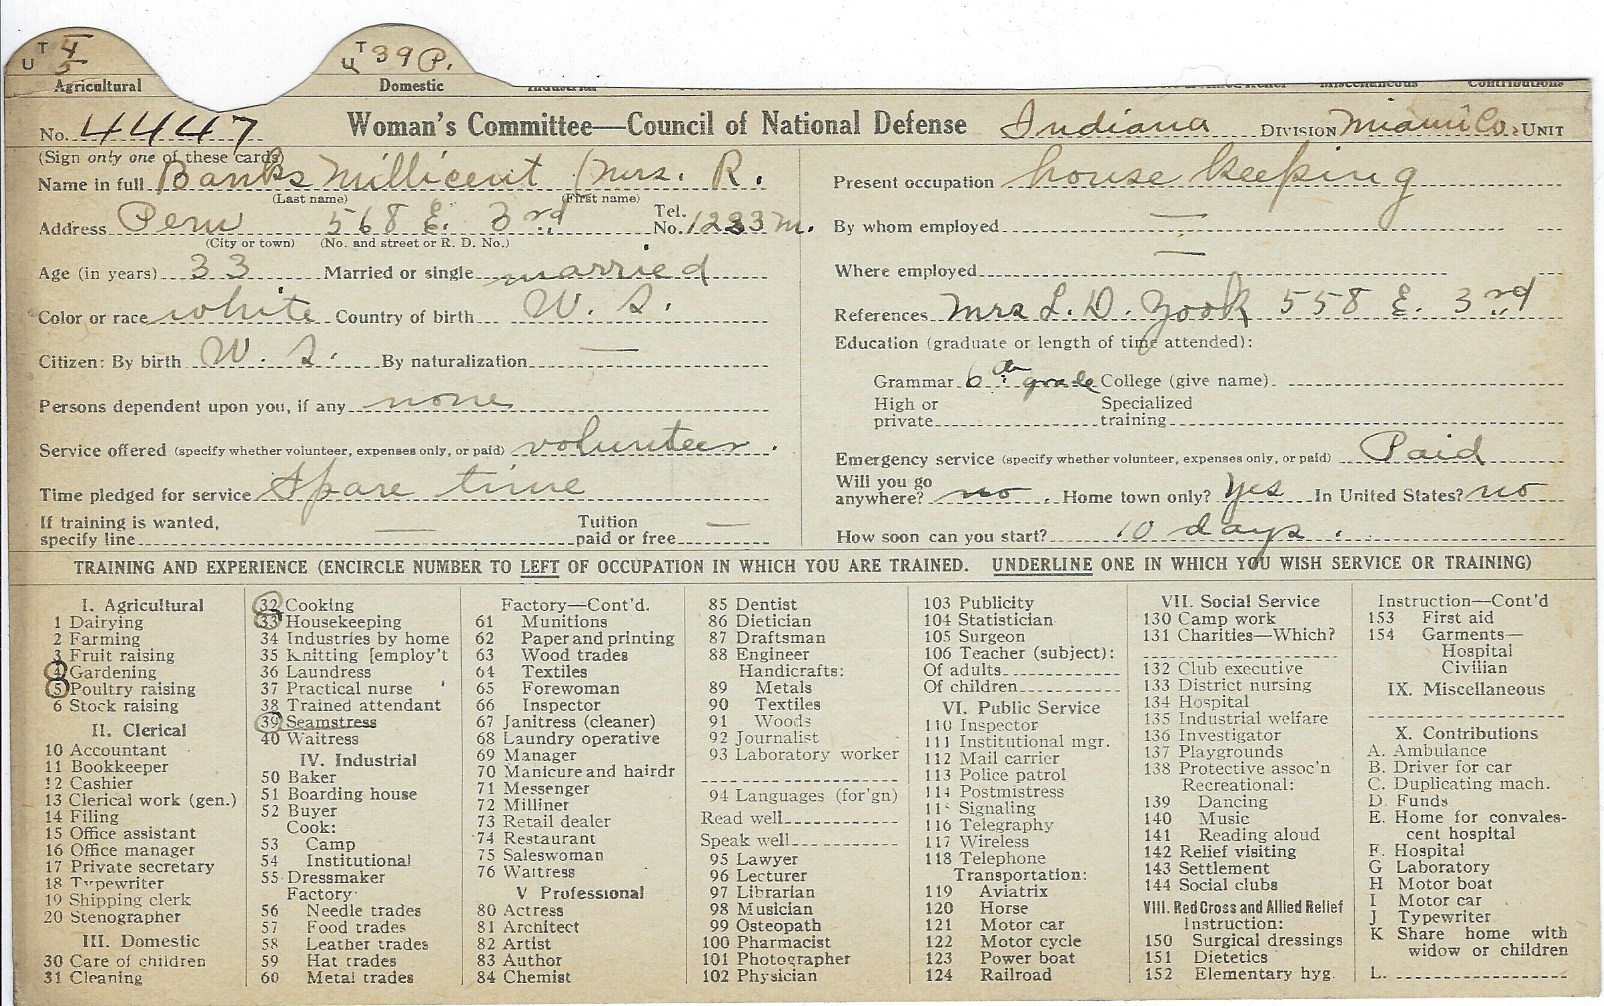 T 4 T 39 P.
U 5 U
Agricultural Domestic Industrial Miscellaneous Contributions
No. 4447 Woman's Committee—Council of National Defense Indiana DIVISION Miami Co. UNIT
(Sign only one of these cards)
Name in full Banks Millicent (Mrs. R.
(Last name) (First name)
Address Peru 568 E. 3rd Tel. No. 1233 M.
(City or town) (No. and street or R. D. No.)
Age (in years) 33 Married or single married
Color or race white Country of birth U. S.
Citizen: By birth U. S. By naturalization —
Persons dependent upon you, if any none
Service offered (specify whether volunteer, expenses only, or paid) volunteer.
Time pledged for service Spare time
If training is wanted, specify line — Tuition paid or free —
Present occupation house keeping
By whom employed —
Where employed —
References Mrs L. D. Zook 558 E. 3rd
Education (graduate or length of time attended):
Grammar 6th grade College (give name)
High or private Specialized training
Emergency service (specify whether volunteer, expenses only, or paid) Paid
Will you go anywhere? no. Home town only? Yes In United States? no
How soon can you start? 10 days.
TRAINING AND EXPERIENCE (ENCIRCLE NUMBER TO LEFT OF OCCUPATION IN WHICH YOU ARE TRAINED. UNDERLINE ONE IN WHICH YOU WISH SERVICE OR TRAINING)
I. Agricultural
1 Dairying
2 Farming
3 Fruit raising
4 Gardening
5 Poultry raising
6 Stock raising
II. Clerical
10 Accountant
11 Bookkeeper
12 Cashier
13 Clerical work (gen.)
14 Filing
15 Office assistant
16 Office manager
17 Private secretary
18 Typewriter
19 Shipping clerk
20 Stenographer
III. Domestic
30 Care of children
31 Cleaning
32 Cooking
33 Housekeeping
34 Industries by home
35 Knitting [employ't
36 Laundress
37 Practical nurse
38 Trained attendant
39 Seamstress
40 Waitress
IV. Industrial
50 Baker
51 Boarding house
52 Buyer
Cook:
53 Camp
54 Institutional
55 Dressmaker
Factory
56 Needle trades
57 Food trades
58 Leather trades
59 Hat trades
60 Metal trades
Factory—Cont'd.
61 Munitions
62 Paper and printing
63 Wood trades
64 Textiles
65 Forewoman
66 Inspector
67 Janitress (cleaner)
68 Laundry operative
69 Manager
70 Manicure and hairdr
71 Messenger
72 Milliner
73 Retail dealer
74 Restaurant
75 Saleswoman
76 Waitress
V Professional
80 Actress
81 Architect
82 Artist
83 Author
84 Chemist
85 Dentist
86 Dietician
87 Draftsman
88 Engineer
Handicrafts:
89 Metals
90 Textiles
91 Woods
92 Journalist
93 Laboratory worker
94 Languages (for'gn)
Read well
Speak well
95 Lawyer
96 Lecturer
97 Librarian
98 Musician
99 Osteopath
100 Pharmacist
101 Photographer
102 Physician
103 Publicity
104 Statistician
105 Surgeon
106 Teacher (subject):
Of adults
Of children
VI. Public Service
110 Inspector
111 Institutional mgr.
112 Mail carrier
113 Police patrol
114 Postmistress
115 Signaling
116 Telegraphy
117 Wireless
118 Telephone
Transportation:
119 Aviatrix
120 Horse
121 Motor car
122 Motor cycle
123 Power boat
124 Railroad
VII. Social Service
130 Camp work
131 Charities—Which?
132 Club executive
133 District nursing
134 Hospital
135 Industrial welfare
136 Investigator
137 Playgrounds
138 Protective assoc'n
Recreational:
139 Dancing
140 Music
141 Reading aloud
142 Relief visiting
143 Settlement
144 Social clubs
VIII. Red Cross and Allied Relief
Instruction:
150 Surgical dressings
151 Dietetics
152 Elementary hyg.
Instruction—Cont'd
153 First aid
154 Garments—
Hospital
Civilian
IX. Miscellaneous
X. Contributions
A. Ambulance
B. Driver for car
C. Duplicating mach.
D. Funds
E. Home for convales-
cent hospital
F. Hospital
G Laboratory
H Motor boat
I Motor car
J Typewriter
K Share home with
widow or children
L.